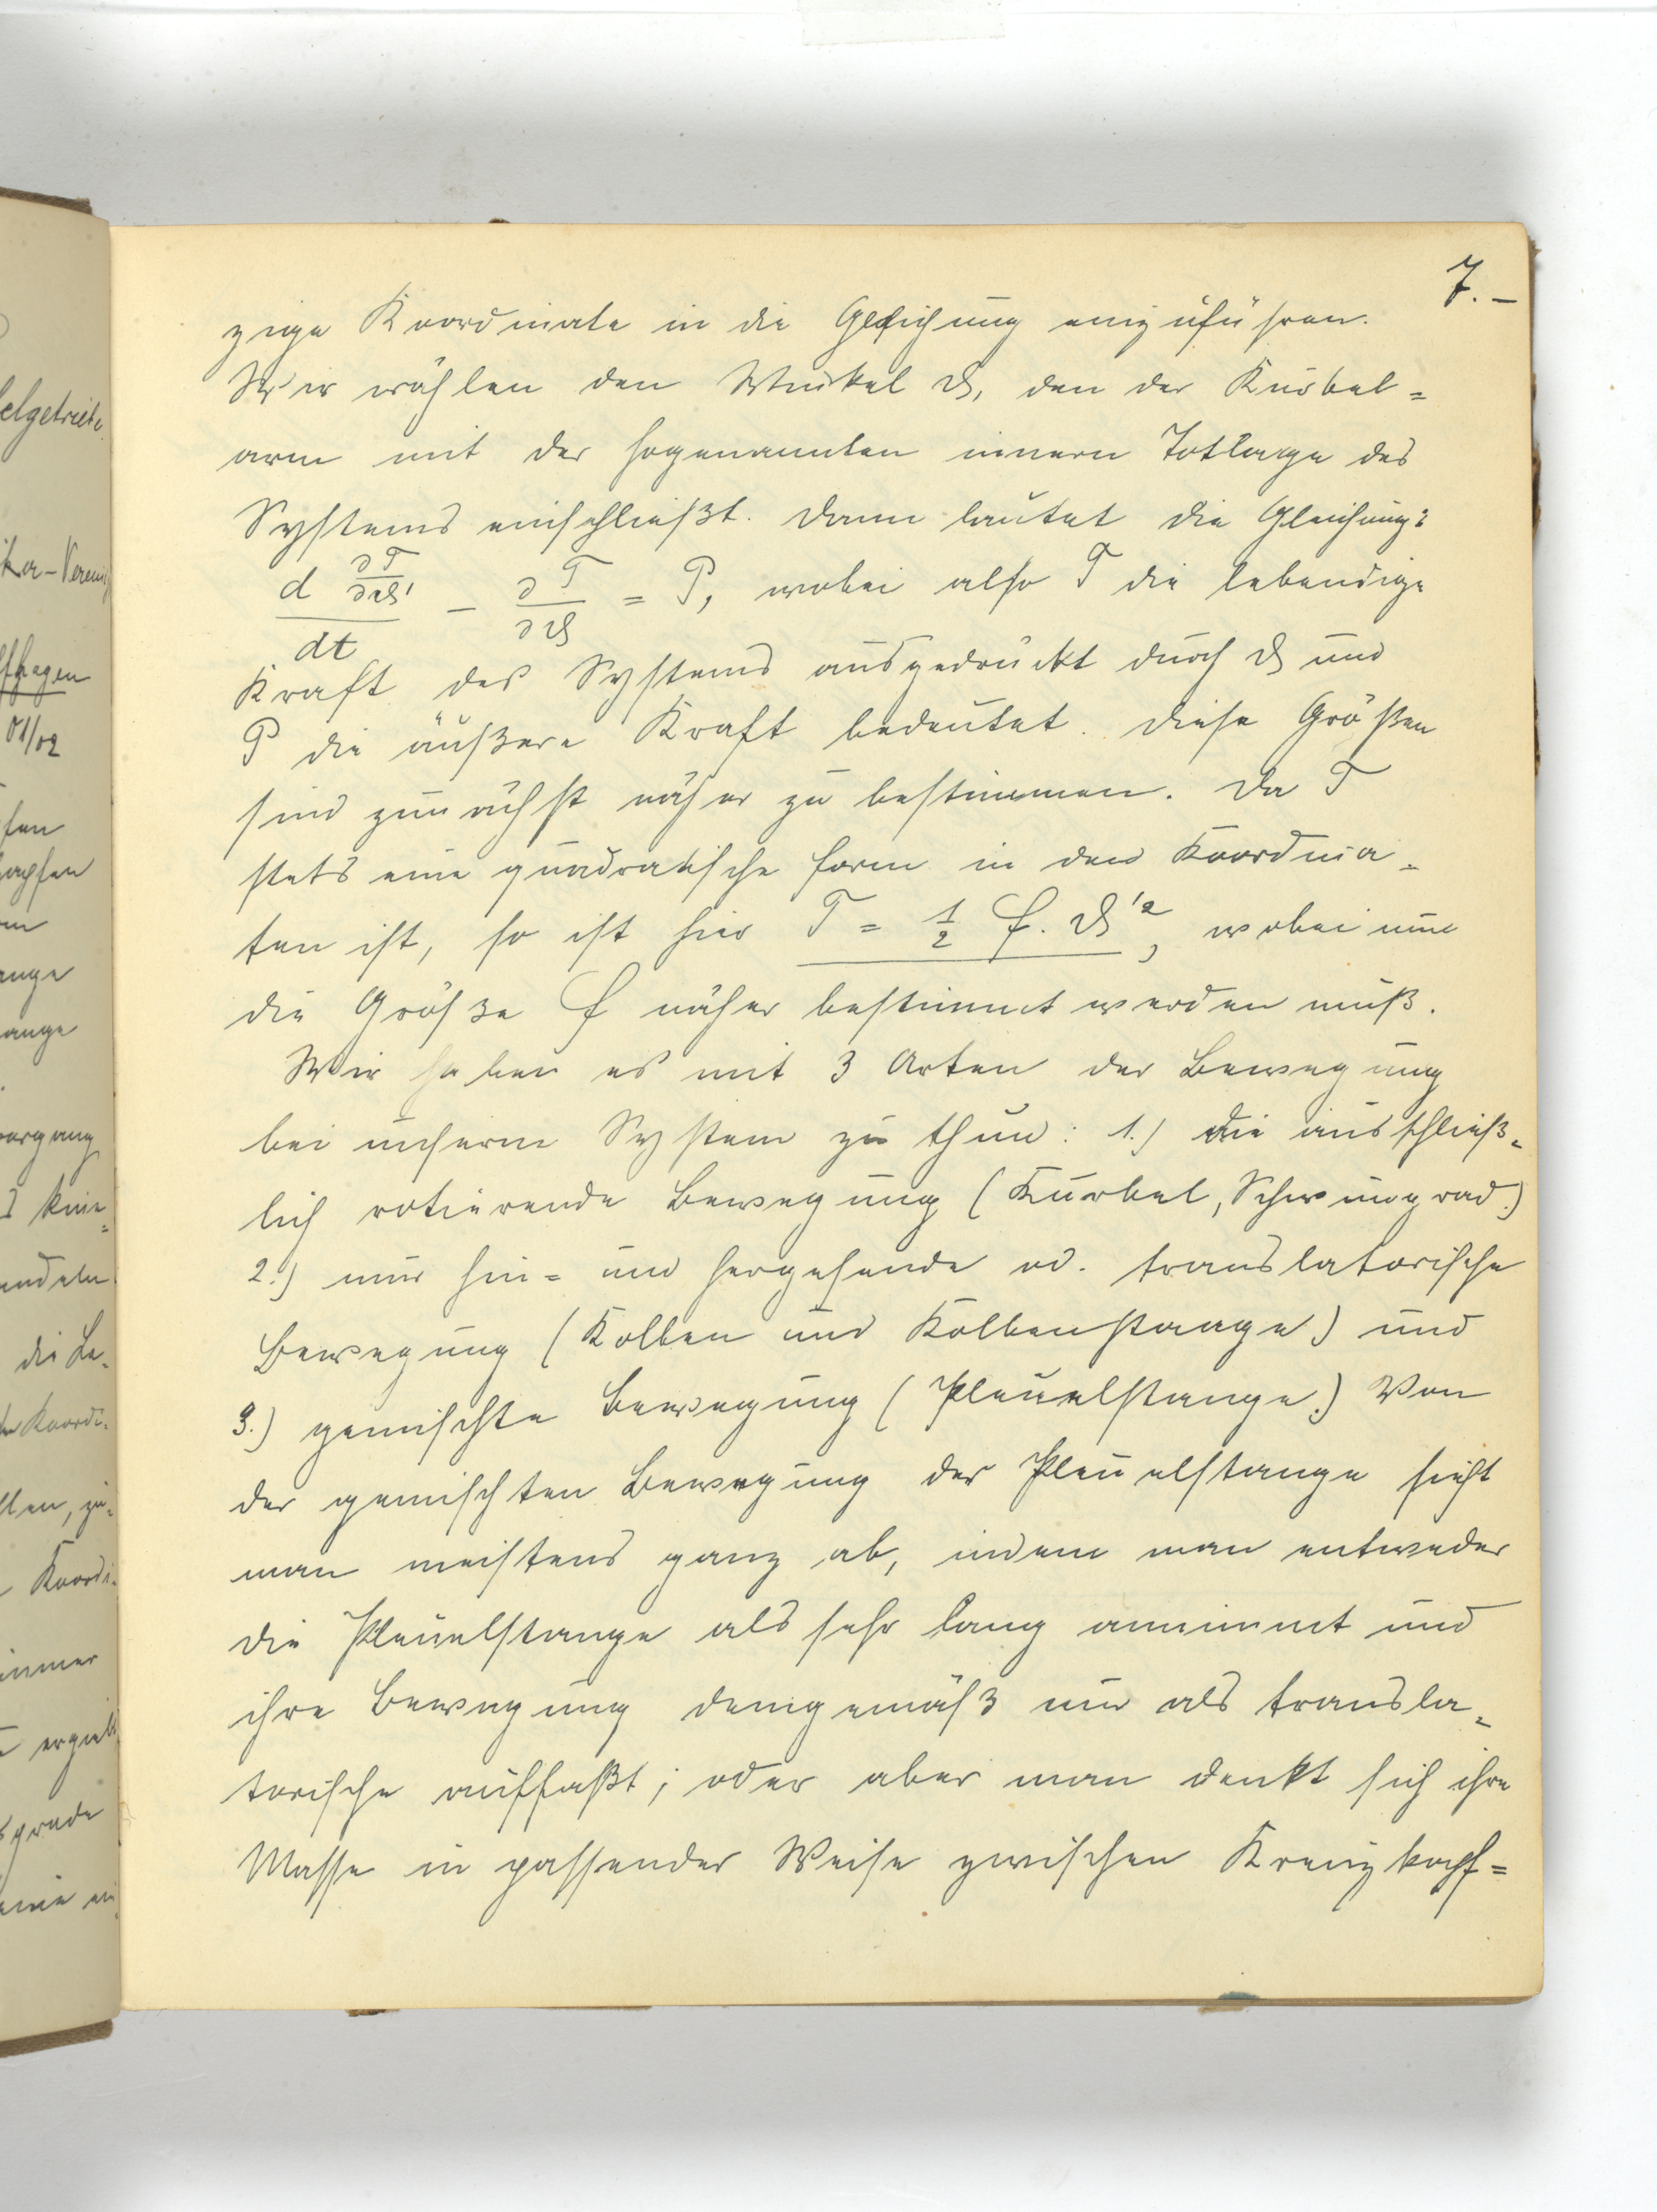 7.–
zige Koordinate in die Gleichung einzuführen.
Wir wählen den Winkel ϑ, den der Kurbel=
arm mit der sogenannten innern Totlage des
Systems einschließt. Dann lautet die Gleichung:
d ∂T/∂ϑ' / dt – ∂T/∂ϑ = P, wobei also T die lebendige
Kraft des Systems ausgedrückt durch ϑ und
P die äußere Kraft bedeutet. Diese Größen
sind zunächst näher zu bestimmen. Da T
stets eine quadratische Form in den Koordina=
ten ist, so ist hier T = 1/2 f. ϑ'², wobei nun
die Größe f näher bestimmt werden muß.
Wir haben es mit 3 Arten der Bewegung
bei unserm System zu thun: 1.) die ausschließ=
lich rotierende Bewegung (Kurbel, Schwungrad.)
2.) nur hin= und hergehende od. translatorische
Bewegung (Kolben und Kolbenstange) und
3.) gemischte Bewegung (Pleuelstange.) Von
der gemischten Bewegung der Pleuelstange sieht
man meistens ganz ab, indem man entweder
die Pleuelstange als sehr lang annimmt und
ihre Bewegung demgemäß nur als transla=
torische auffaßt; oder aber man denkt sich ihre
Masse in passender Weise zwischen Kreuzkopf=
elgetriebe
fhagen
01/02
fen
zapfen
ange
ange
organg
s kine=
andeln
die Le=
Koordi=
llen, zu=
Koordi=
immer
ergiebt
grade